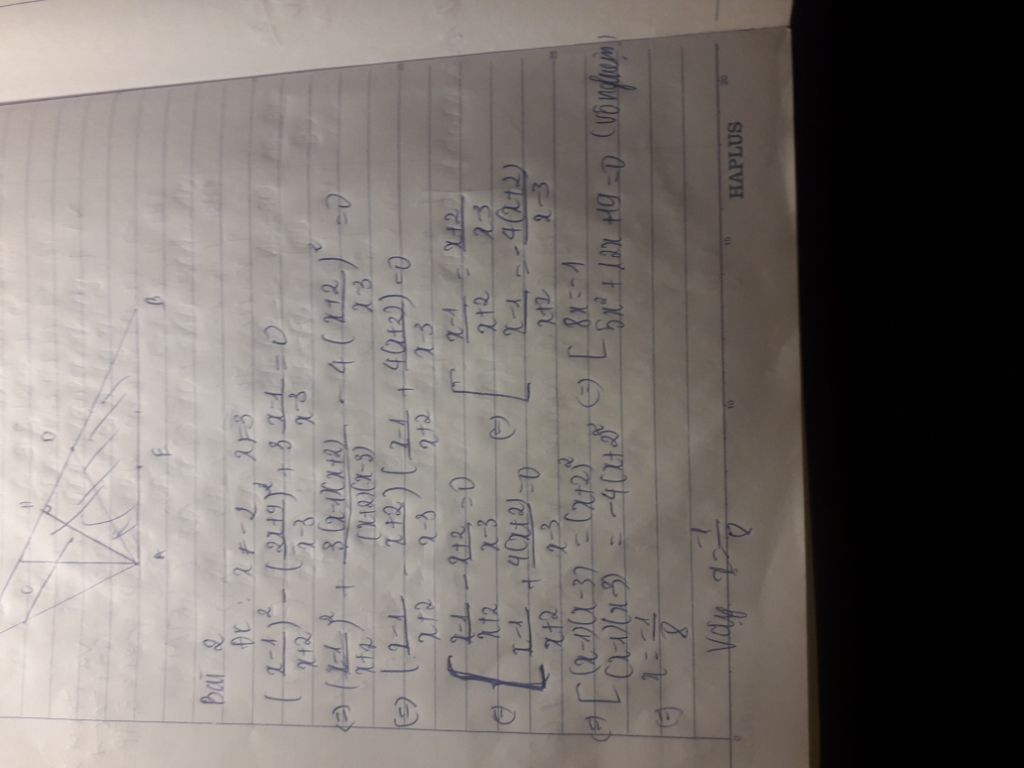 C H D B
A F
Bài 2
ĐK: x ≠ -2 x ≠ 3
((x-1)/(x+2))² - ((2x+4)/(x-3))² + 3 (x-1)/(x-3) = 0
(=) ((x-1)/(x+2))² + 3(x-1)(x+2)/((x+2)(x-3)) - 4((x+2)/(x-3))² = 0
(=) ((x-1)/(x+2) - (x+2)/(x-3))((x-1)/(x+2) + 4(x+2)/(x-3)) = 0
(=) [ (x-1)/(x+2) - (x+2)/(x-3) = 0 (=) [ (x-1)/(x+2) = (x+2)/(x-3)
(x-1)/(x+2) + 4(x+2)/(x-3) = 0 (x-1)/(x+2) = -4(x+2)/(x-3)
(=) [ (x-1)(x-3) = (x+2)² (=) [ 8x = -1
(x-1)(x-3) = -4(x+2)² 5x² + 12x + 19 = 0 (vô nghiệm)
(=) x = -1/8
Vậy x = -1/8
0 10 15 20 HAPLUS